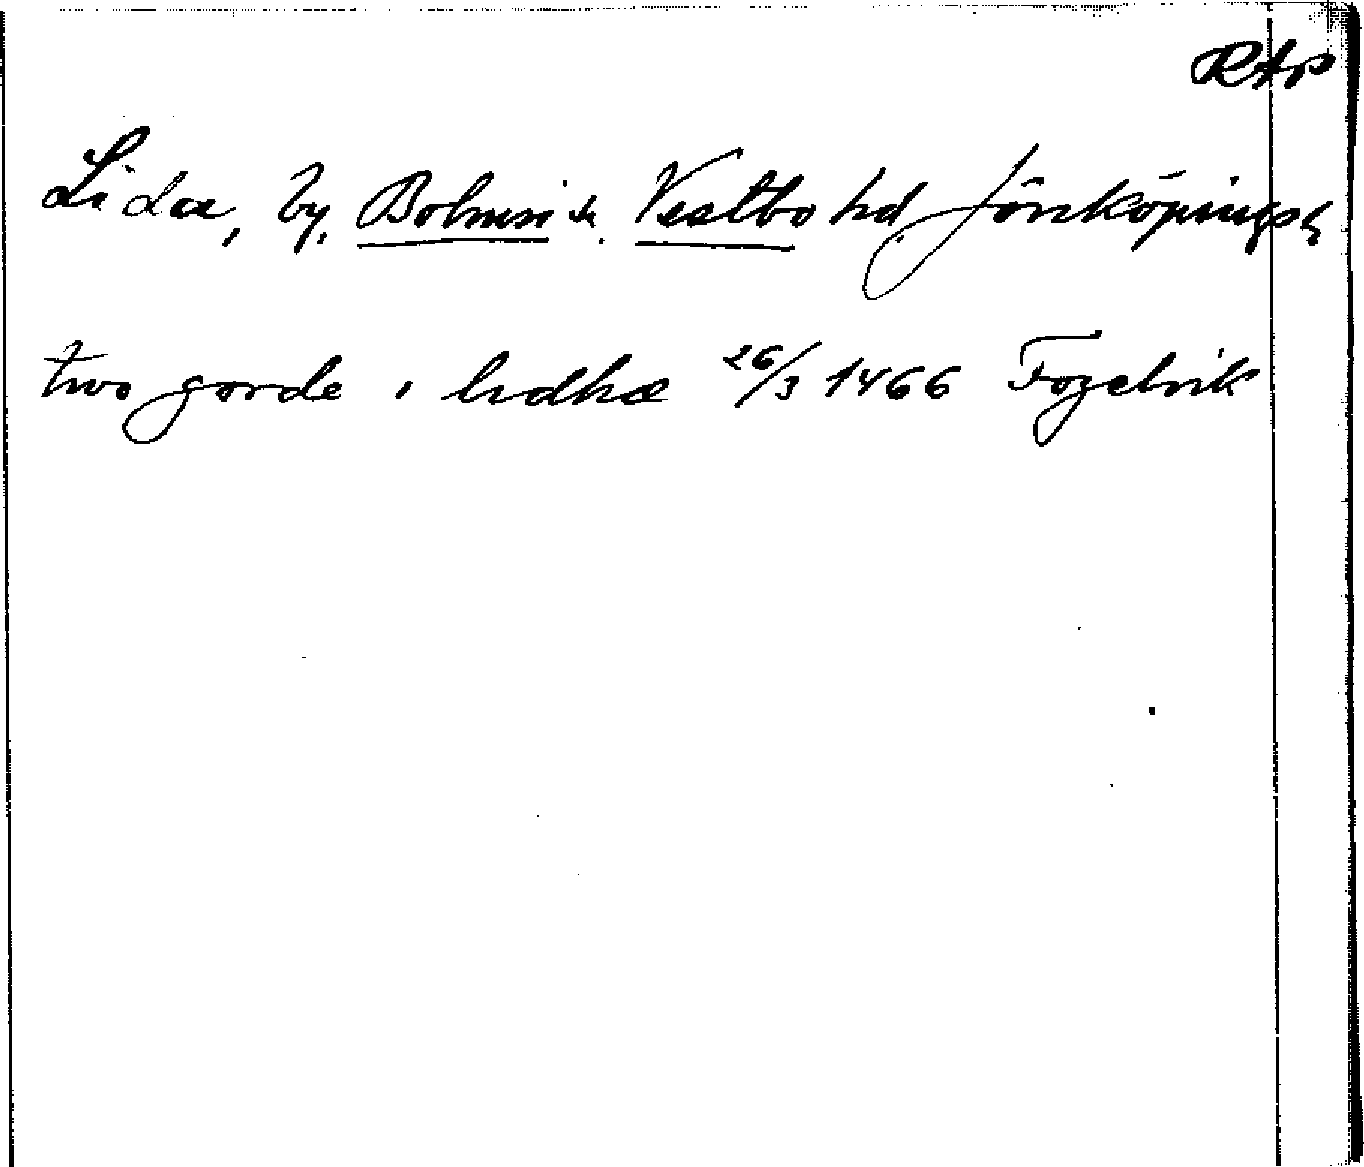 RAp
Lida, by, Bolmsö sn. Västbo hd Jönköpings l
two gorde i lidhæ 26/3 1466 Fogelvik